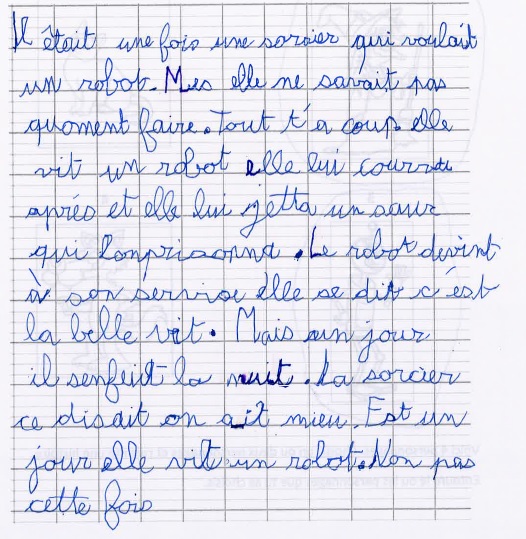 Il êtait une fois une sorcier qui voulait
un robot. Mes elle ne savait pas
quoment faire. Tout t'a coup elle
vit un robot elle lui courru
aprés et elle lui jetta un saur
qui l'onprisonna. Le robot devint
à son service elle se dit c'est
la belle vit. Mais un jour
il senfeuit la nuit. La sorcier
ce disait on ait mieu. Est un
jour elle vit un robot. Non pas
cette fois